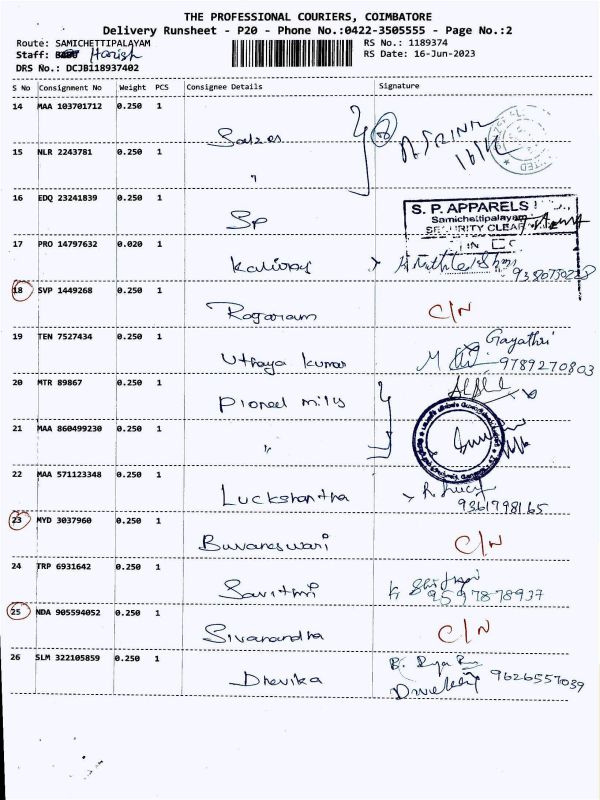 THE PROFESSIONAL COURIERS, COIMBATORE
Delivery Runsheet - P20 - Phone No.:0422-3505555 - Page No.:2
Route: SAMICHETTIPALAYAM
RS No.: 1189374
Staff: Harish
RS Date: 16-Jun-2023
DRS No.: DCJB118937402
S No Consignment No Weight PCS Consignee Details Signature
14 MAA 103701712 0.250 1
15 NLR 2243781 0.250 1 "
16 EDQ 23241839 0.250 1 SP
S. P. APPARELS
Samichettipalayam
SECURITY CLEAR
IN
17 PRO 14797632 0.020 1
18 SVP 1449268 0.250 1 C/N
19 TEN 7527434 0.250 1 Uthaya kumar Gayathri
9789270803
20 MTR 89867 0.250 1
21 MAA 860499230 0.250 1 "
22 MAA 571123348 0.250 1 Luckshantha
9361798165
23 MYD 3037960 0.250 1 Buvaneswari C/N
24 TRP 6931642 0.250 1 Savithri
9597878937
25 NDA 905594052 0.250 1 Sivanandha C/N
26 SLM 322105859 0.250 1 Dhevika
9626557039